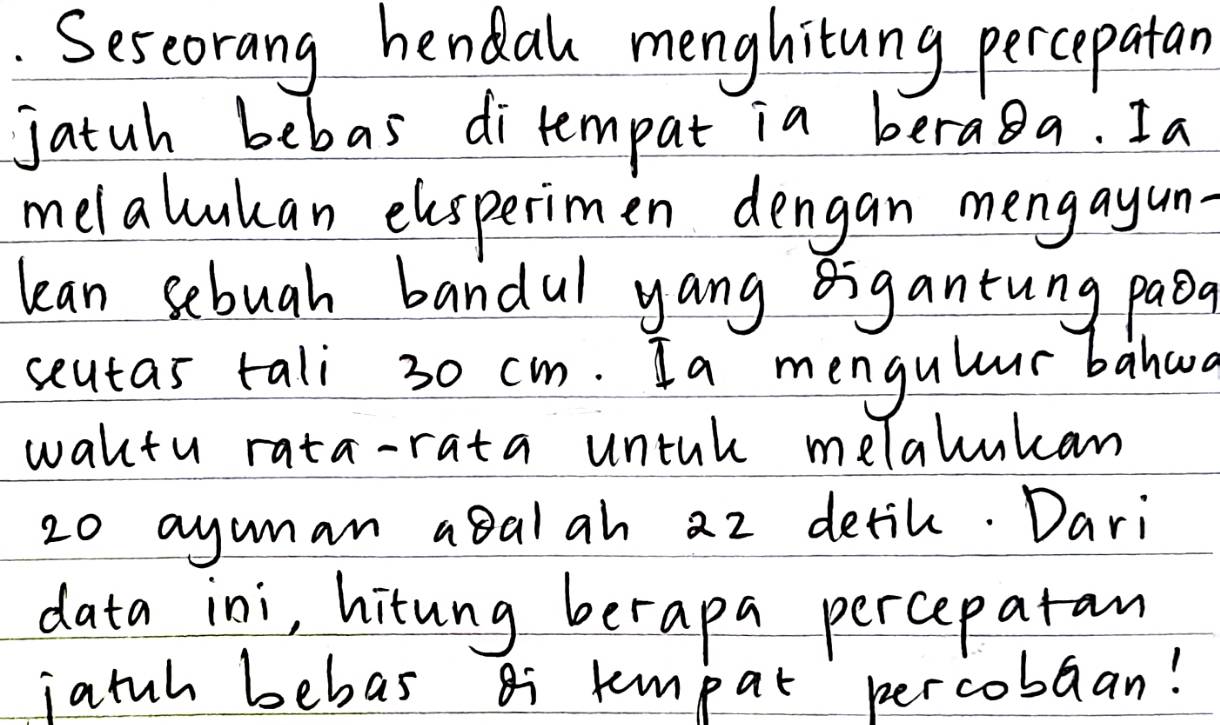 . Seseorang hendak menghitung percepatan
jatuh bebas di tempat ia berada. Ia
melakukan eksperimen dengan mengayun-
kan sebuah bandul yang digantung pada
seutas tali 30 cm. Ia mengukur bahwa
waktu rata-rata untuk melakukan
20 ayunan adalah 22 detik. Dari
data ini, hitung berapa percepatan
jatuh bebas di tempat percobaan!